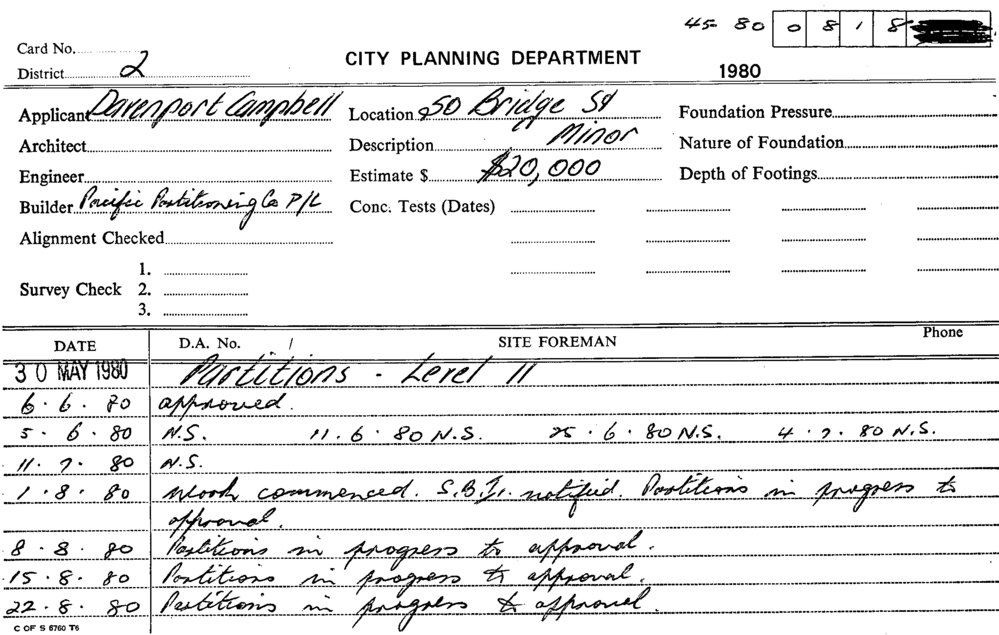 45 80 0 8 1 8
Card No.
CITY PLANNING DEPARTMENT
District 2
1980
Applicant Davenport Campbell Location 50 Bridge St Foundation Pressure
Architect Description Minor Nature of Foundation
Engineer Estimate $ $20,000 Depth of Footings
Builder Pacific Partitioning Co P/L Conc. Tests (Dates)
Alignment Checked
1.
Survey Check 2.
3.
DATE D.A. No. / SITE FOREMAN Phone
30 MAY 1980 Partitions - Level 11
6.6.80 approved.
5.6.80 N.S. 11.6.80 N.S. 25.6.80 N.S. 4.7.80 N.S.
11.7.80 N.S.
1.8.80 Work commenced. S.B.I. notified. Partitions in progress to
approval.
8.8.80 Partitions in progress to approval.
15.8.80 Partitions in progress to approval.
22.8.80 Partitions in progress to approval.
C OF S 6760 T6